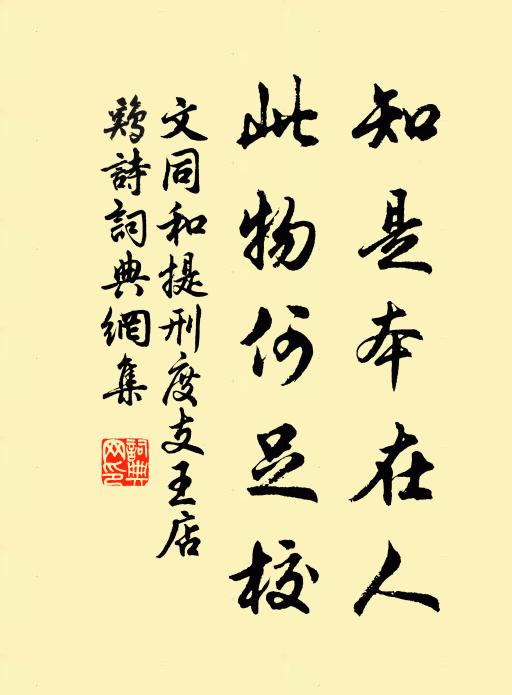 知是本在人
此物何足校
文同和提刑度支王店
鶏詩詞典網集
詞典
网印